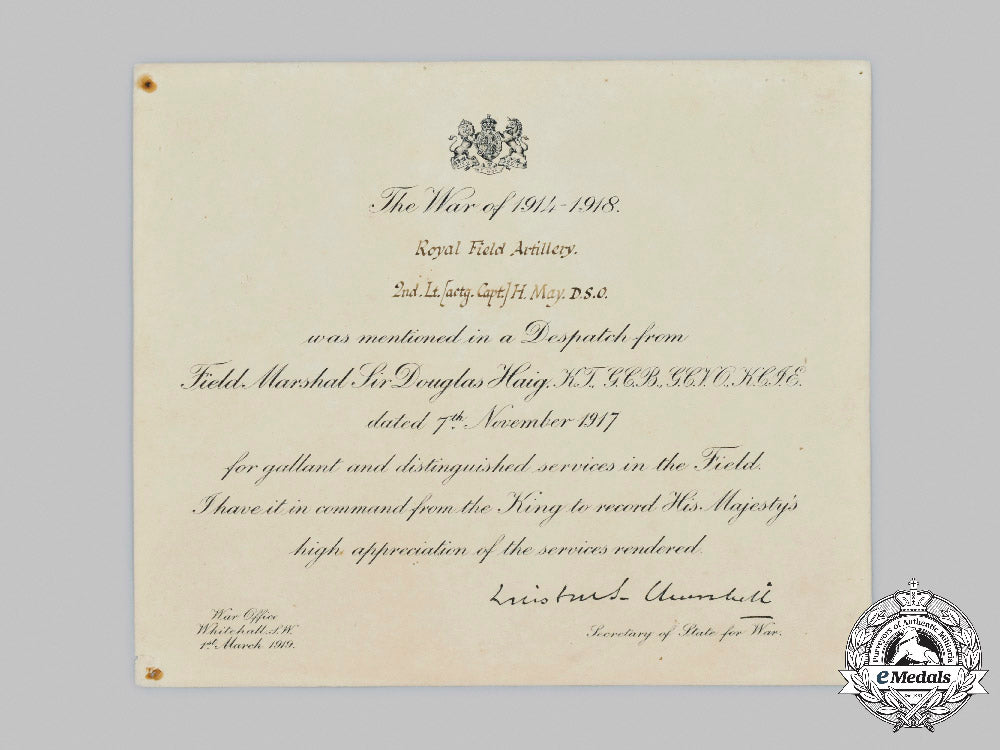 The War of 1914-1918.
Royal Field Artillery.
2nd. Lt. [actg. Capt.] H. May. D.S.O.
was mentioned in a Despatch from
Field Marshal Sir Douglas Haig, K.T. G.C.B., G.C.V.O., K.C.I.E.
dated 7th November 1917
for gallant and distinguished services in the Field.
I have it in command from the King to record His Majesty's
high appreciation of the services rendered.
Winston S. Churchill
Secretary of State for War.
War Office
Whitehall, S.W.
1st March 1919.
Purveyors of Authentic Militaria
eMedals